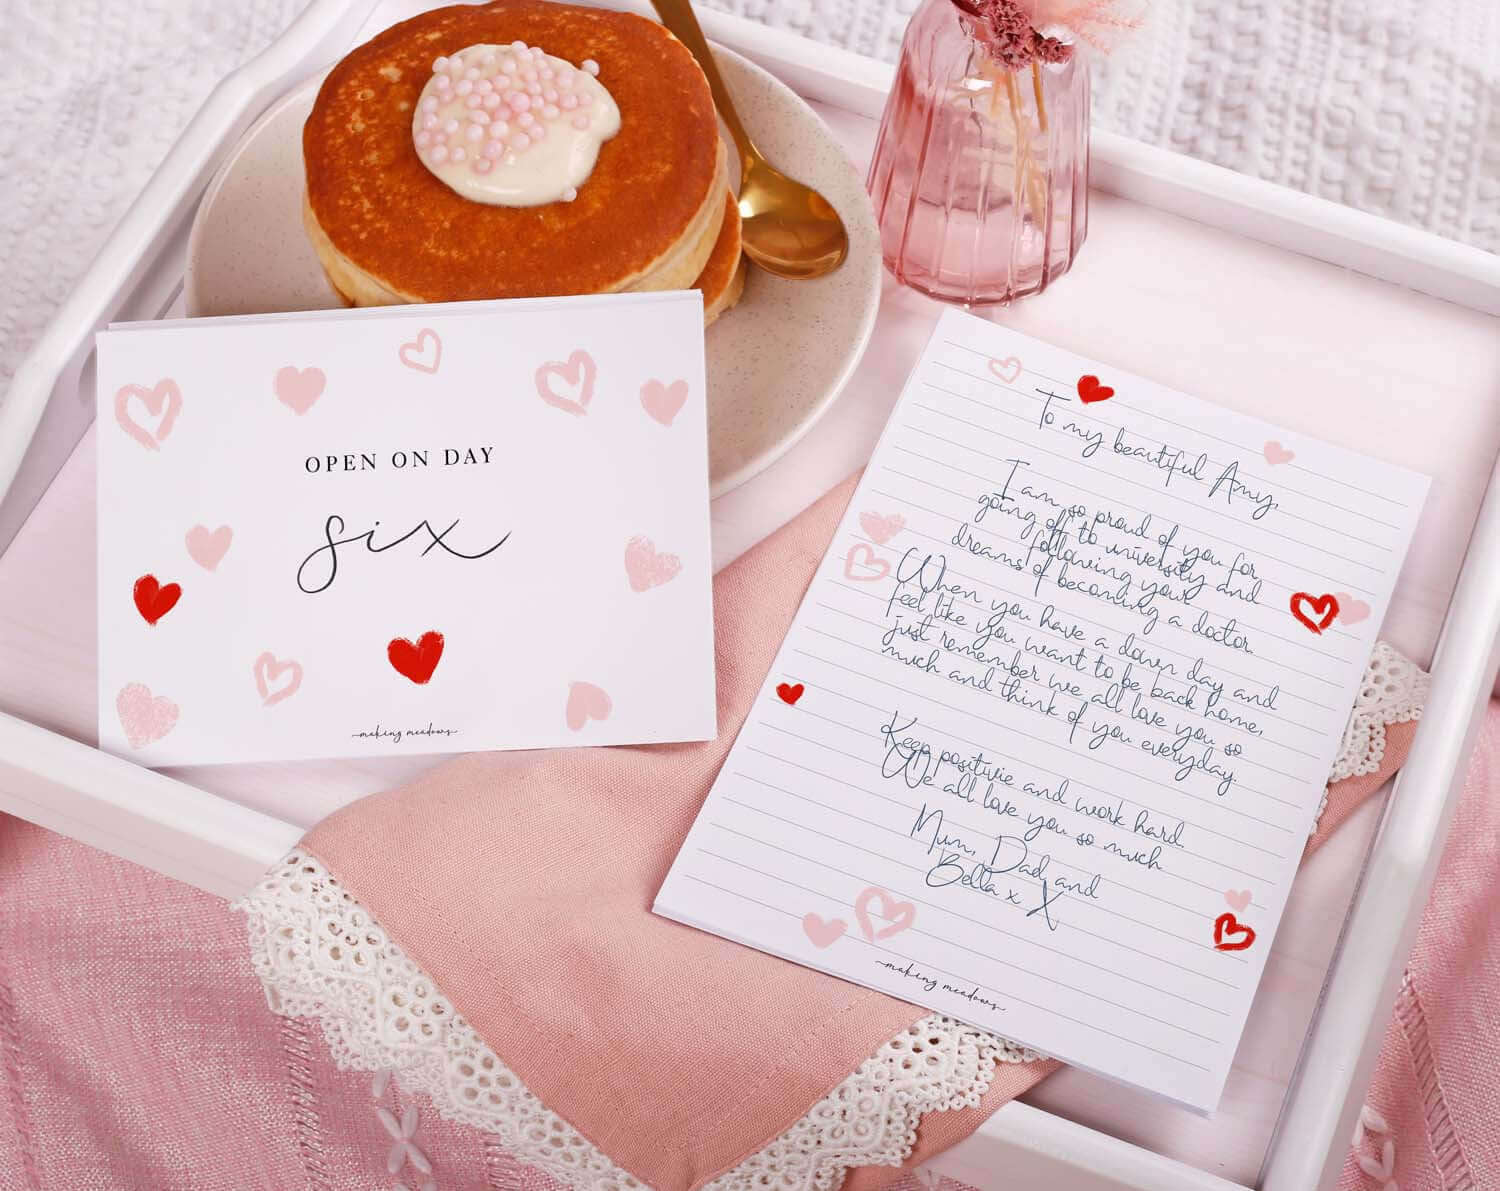 OPEN ON DAY
six
making meadows
To my beautiful Amy,
I am so proud of you for
going off to university and
following your
dreams of becoming a doctor.
When you have a down day and
feel like you want to be back home,
just remember we all love you so
much and think of you everyday.
Keep positivie and work hard.
We all love you so much
Mum, Dad and
Bella x X
making meadows